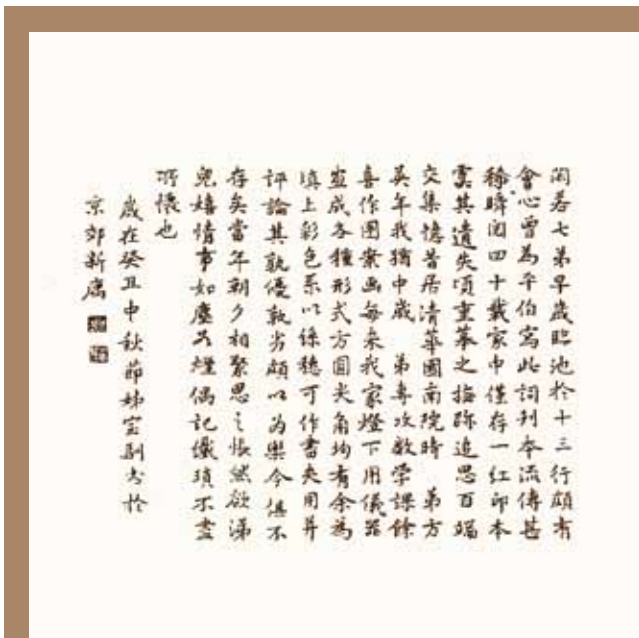 閑若七弟早歲臨池於十三行頗有
會心曾為平伯寫此詞刊本流傳甚
稀瞬閱四十載家中僅存一紅印本
虞其遺失頃重摹之撫跡追思百端
交集憶昔居清華園南院時 弟方
英年我猶中歲 弟專攻數學課餘
喜作圖案畫每來我家燈下用儀器
畫成各種形式方圓尖角均有余為
填上彩色系以絲穗可作書夾用并
評論其孰優孰劣頗以為樂今俱不
存矣當年朝夕相聚思之悵然欲涕
兒嬉情事如塵煙偶記纖瑣不盡
所懷也
歲在癸丑中秋節姊寶馴書於
京郊新寓